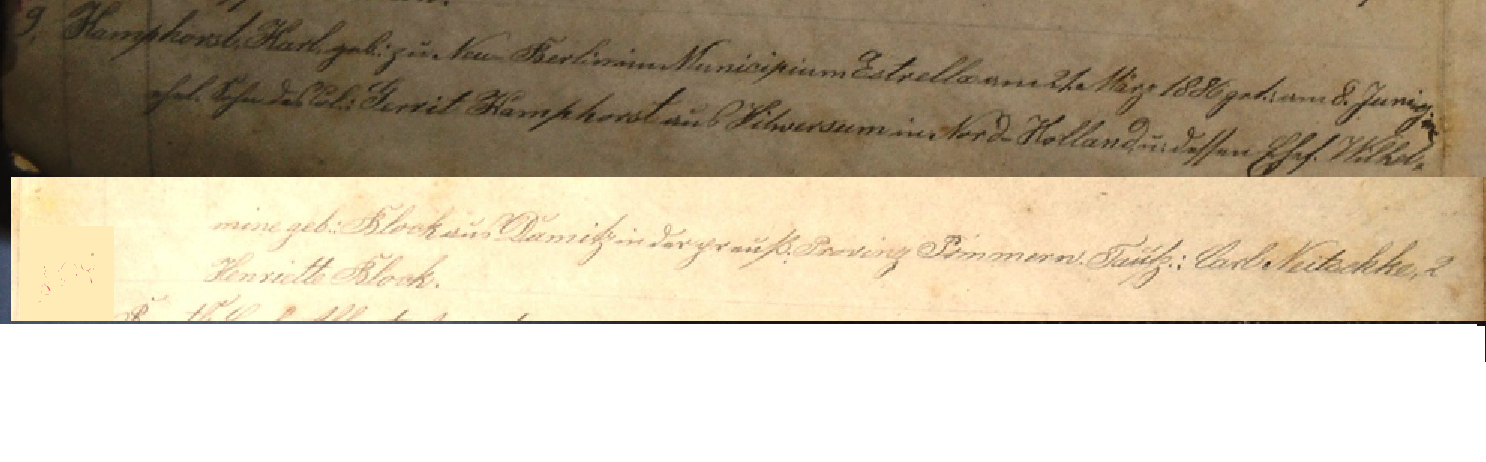 9. Hamphorst, Karl, geb: zu Neu-Berlin im Municipium Estrella am 21. März 1886 get: am 8. Juni ej.
ehel. Sohn des Col: Gerrit Hamphorst aus Hilversum in Nord-Holland u: dessen Ehef. Wilhel-
mine geb: Block aus Damitz in der preuß. Provinz Pommern. Taufz.: Carl Neitzekke, 2
Henriette Block.